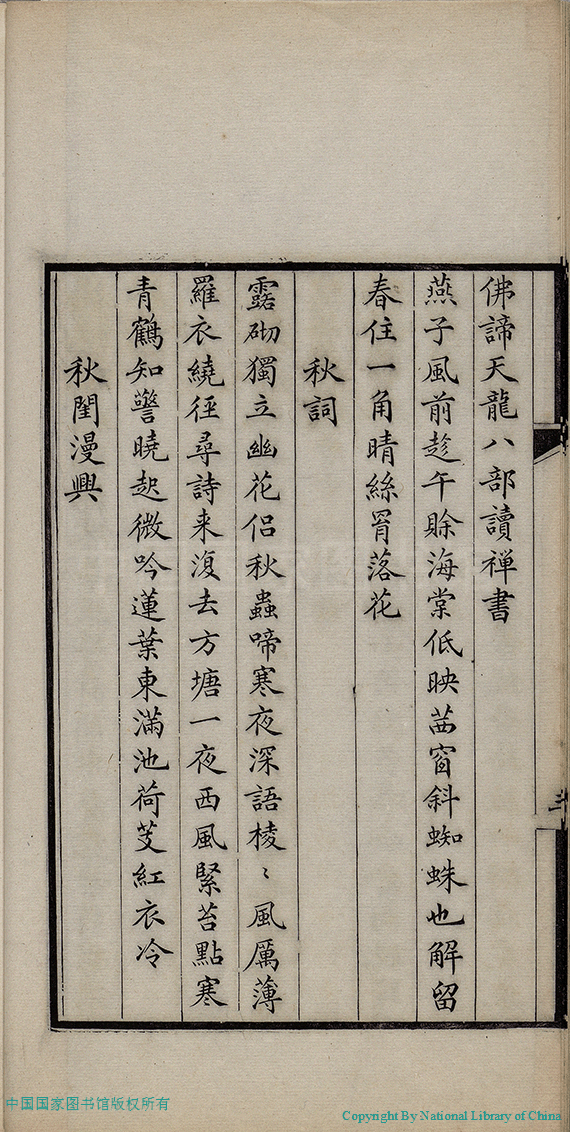 佛諦天龍八部讀禪書
燕子風前趁午賒海棠低映茜窗斜蜘蛛也解留
春住一角晴絲罥落花
秋詞
露砌獨立幽花侶秋蟲啼寒夜深語棱〻風厲薄
羅衣繞徑尋詩来復去方塘一夜西風緊苔點寒
青鶴知警曉起微吟蓮葉東滿池荷芰紅衣冷
秋閨漫興
中国国家图书馆版权所有
Copyright By National Library of China